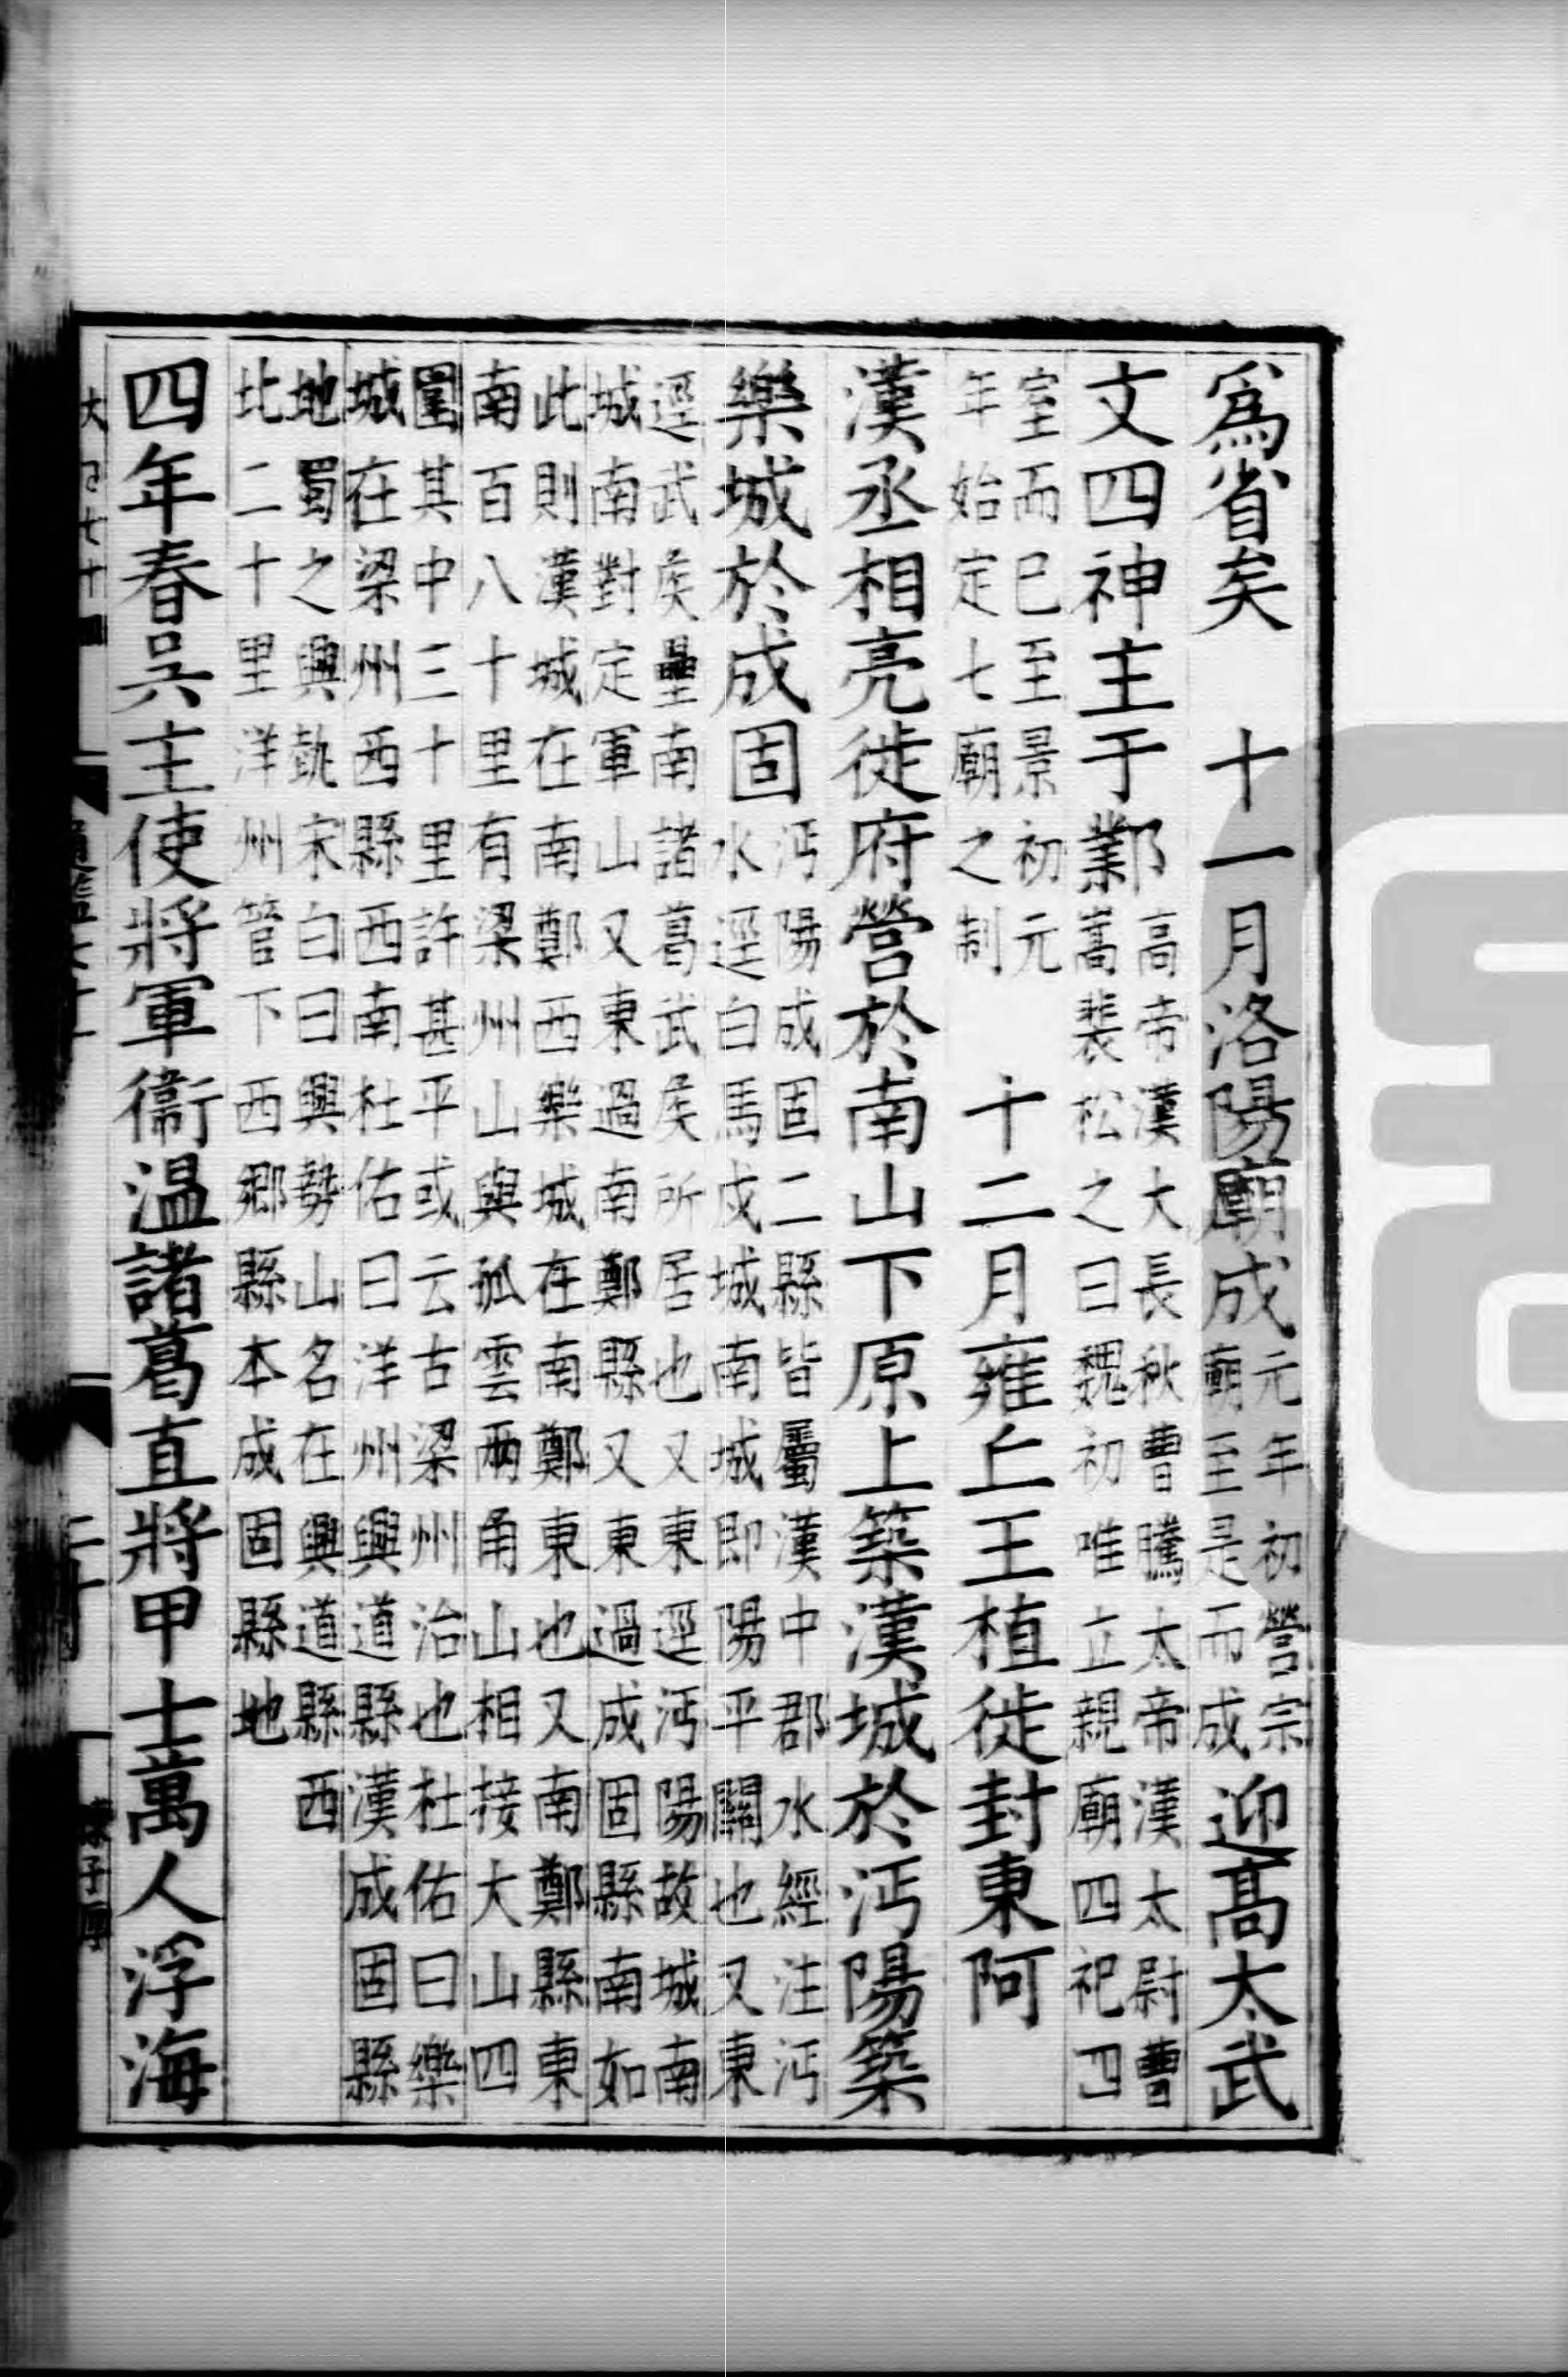 爲省矣　十一月洛陽廟成元年初營宗廟至是而成迎高太武
文四神主于鄴高帝漢大長秋曹騰太帝漢太尉曹嵩裴松之曰魏初唯立親廟四祀四
室而已至景初元年始定七廟之制　十二月雍丘王植徙封東阿
漢丞相亮徙府營於南山下原上築漢城於沔陽築
樂城於成固沔陽成固二縣皆屬漢中郡水經注沔水逕白馬戍城南城即陽平關也又東
逕武矦壘南諸葛武矦所居也又東逕沔陽故城南
城南對定軍山又東過南鄭縣又東過成固縣南如
此則漢城在南鄭西樂城在南鄭東也又南鄭縣東
南百八十里有梁州山與孤雲兩角山相接大山四
圍其中三十里許甚平或云古梁州治也杜佑曰樂
城在梁州西縣西南杜佑曰洋州興道縣漢成固縣
地蜀之興埶宋白曰興勢山名在興道縣西
北二十里洋州管下西鄉縣本成固縣地
四年春吳主使將軍衞温諸葛直將甲士萬人浮海